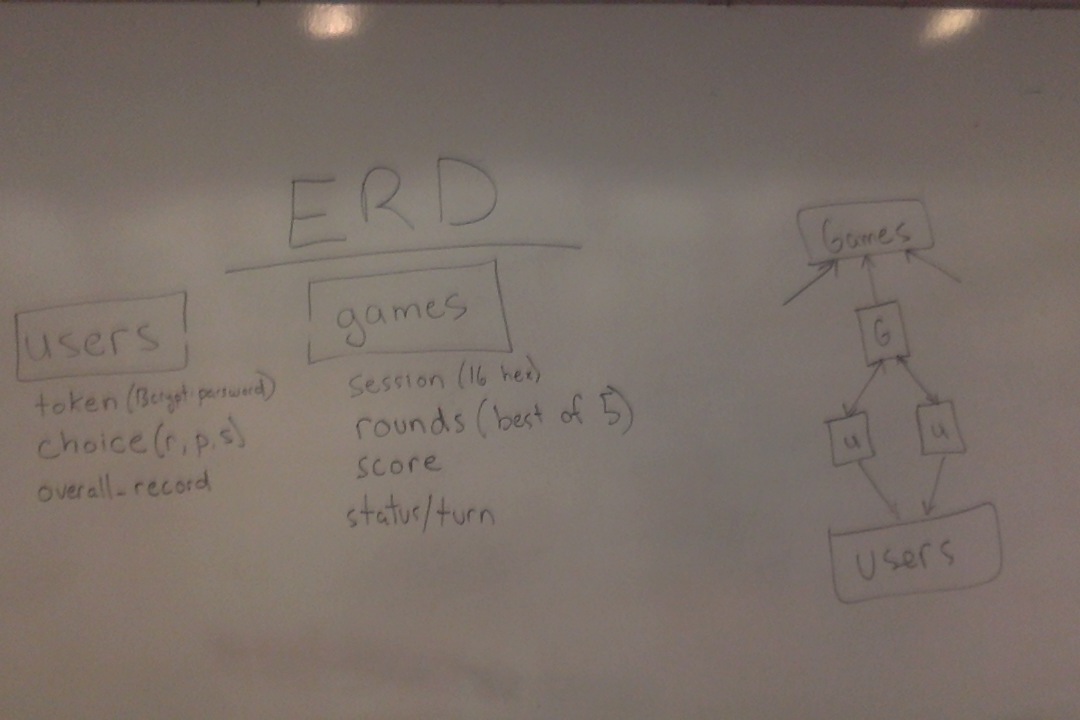 ERD
users
token (Bcrypt password)
choice (r, p, s)
overall_record
games
session (16 hex)
rounds (best of 5)
score
status/turn
Games
G
u
u
users